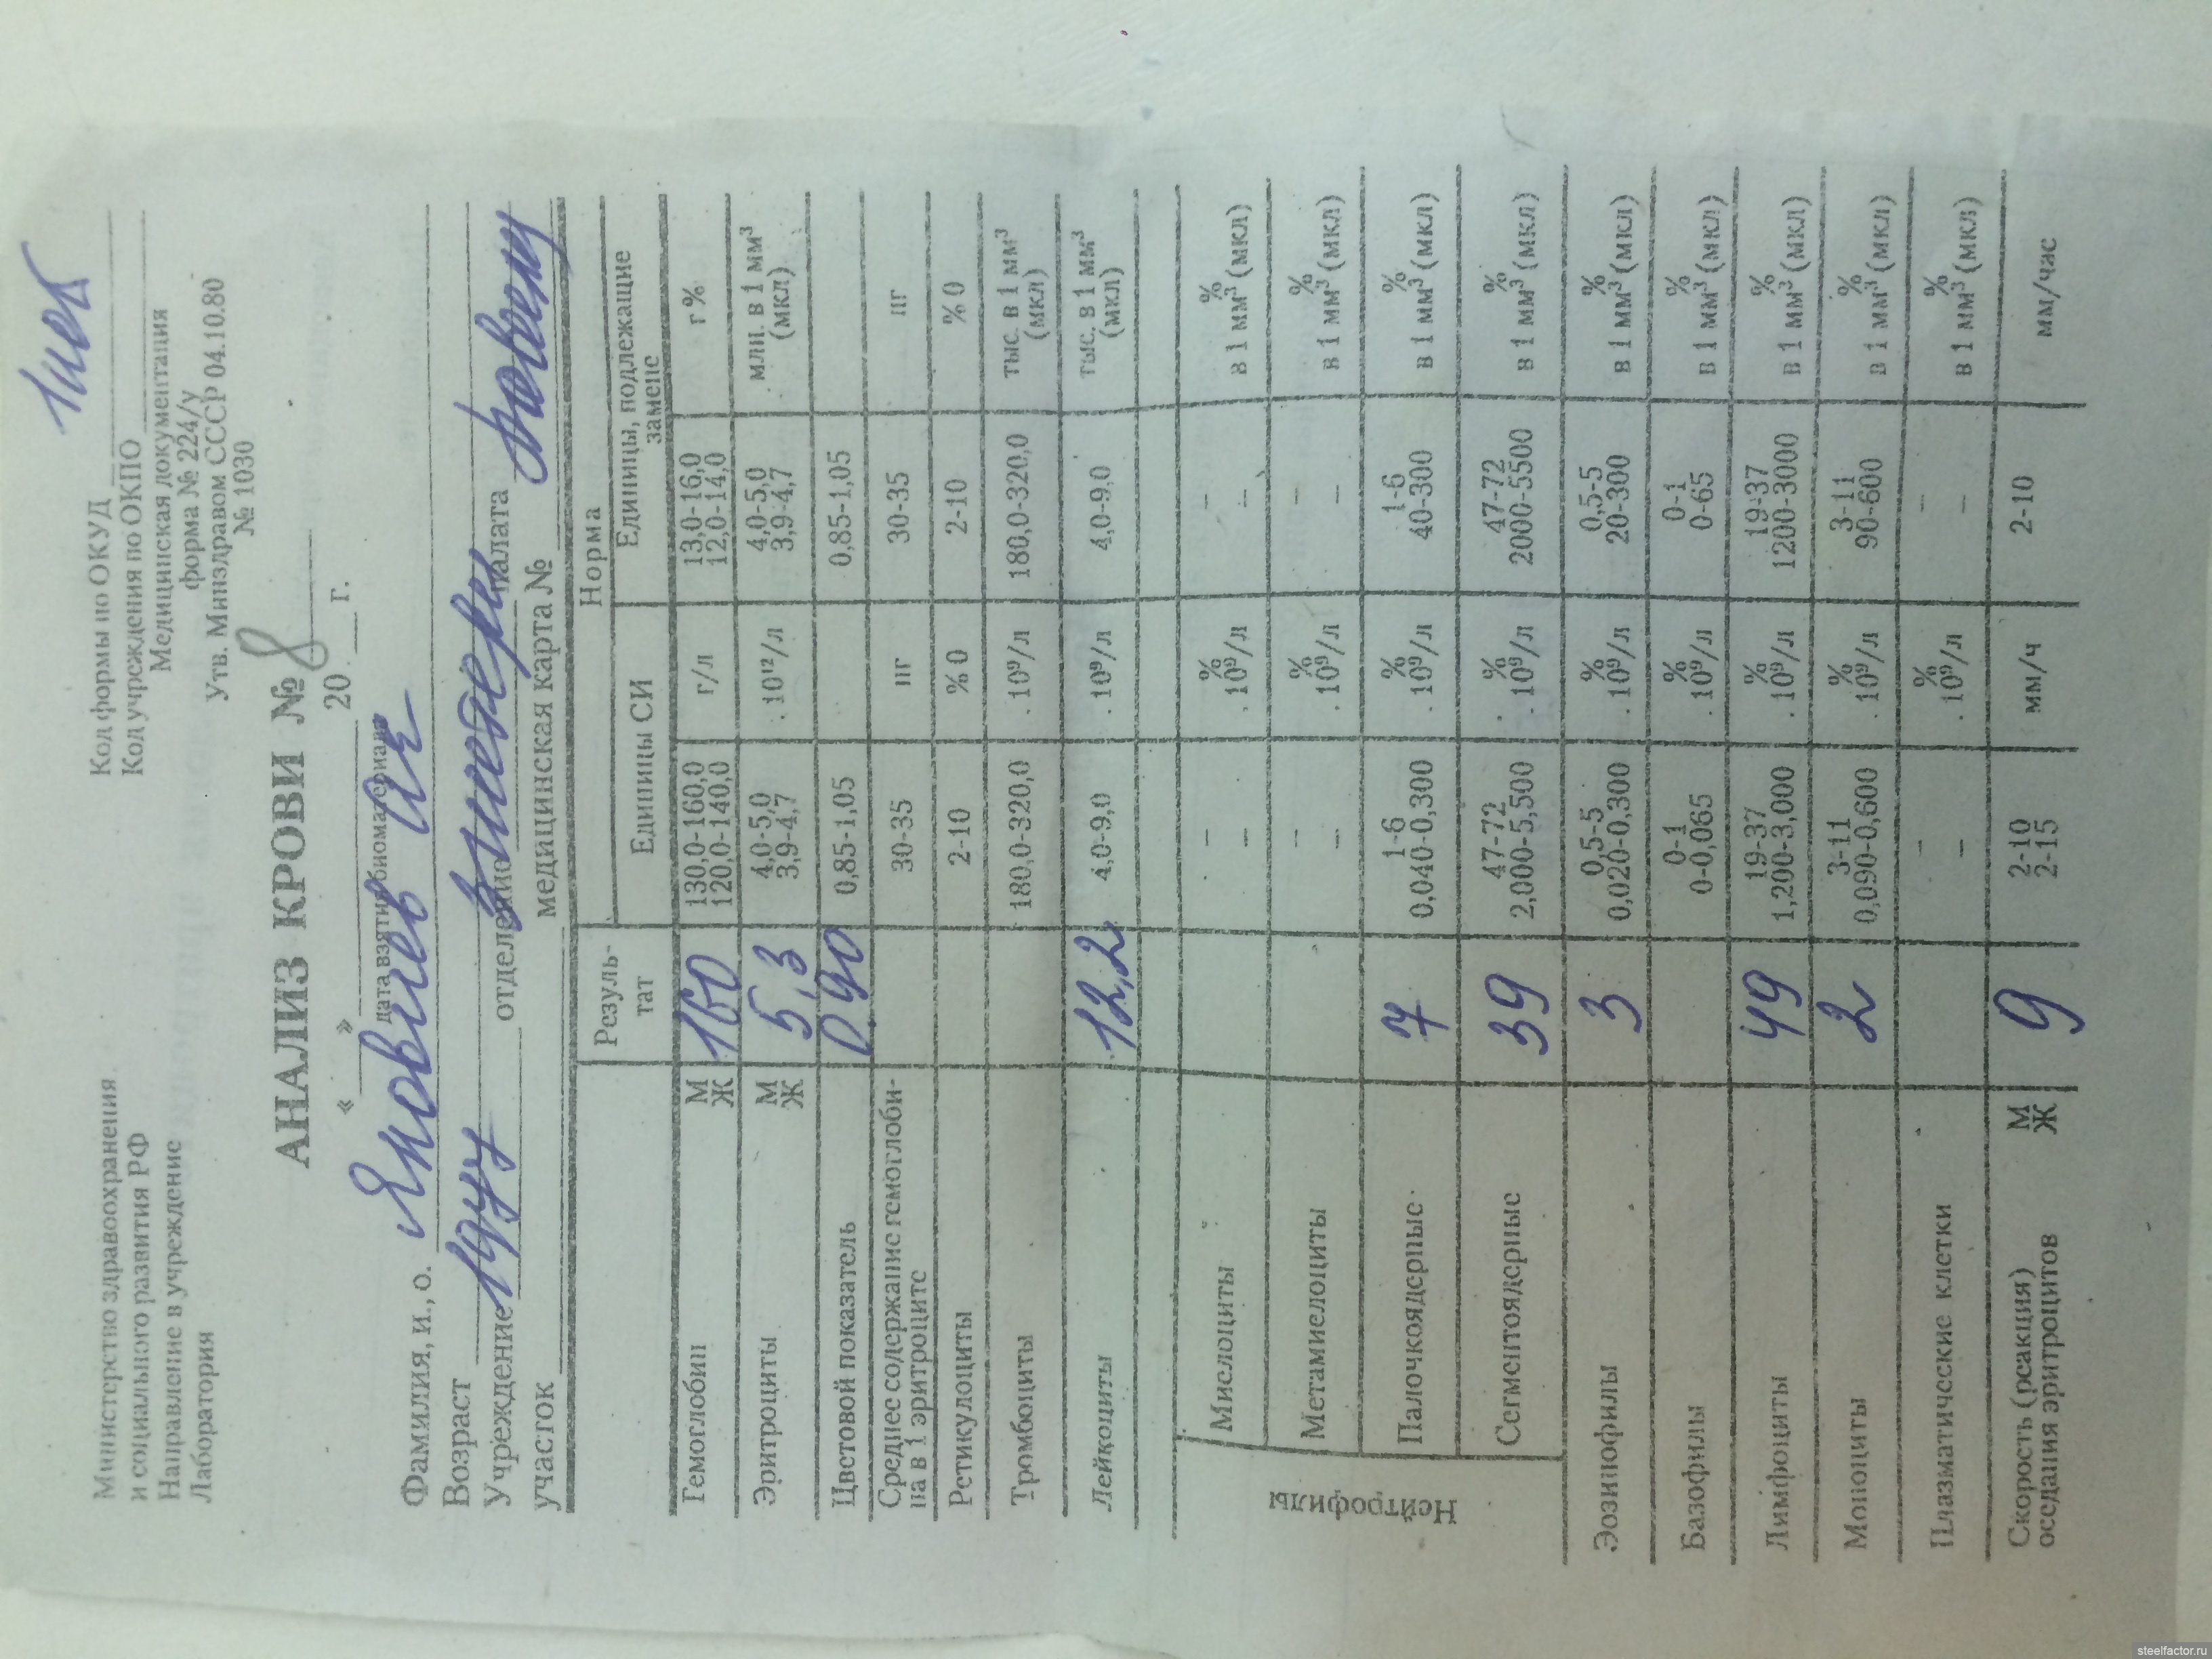 Министерство здравоохранения
и социального развития РФ
Направление в учреждение
Лаборатория
Код формы по ОКУД
Код учреждения по ОКПО
Медицинская документация
форма № 224/у
Утв. Минздравом СССР 04.10.80
№ 1030
АНАЛИЗ КРОВИ № 8
« » 20 г.
дата взятия биоматериала
Фамилия, и., о. Яковлев
Возраст
Учреждение 1977 отделение палата
участок медицинская карта №
Резуль-
тат
Норма
Единицы СИ
Единицы, подлежащие
замене
Гемоглобин М 160 130,0-160,0 г/л 13,0-16,0 г%
Ж 120,0-140,0 12,0-14,0
Эритроциты М 5,3 4,0-5,0 · 10¹²/л 4,0-5,0 млн. в 1 мм³
Ж 3,9-4,7 3,9-4,7 (мкл)
Цветовой показатель 0,90 0,85-1,05 0,85-1,05
Среднее содержание гемоглоби-
на в 1 эритроците 30-35 пг 30-35 пг
Ретикулоциты 2-10 %0 2-10 %0
Тромбоциты 180,0-320,0 · 10⁹/л 180,0-320,0 тыс. в 1 мм³
(мкл)
Лейкоциты 12,2 4,0-9,0 · 10⁹/л 4,0-9,0 тыс. в 1 мм³
(мкл)
Нейтрофилы
Миелоциты – % – %
– · 10⁹/л – в 1 мм³ (мкл)
Метамиелоциты – % – %
– · 10⁹/л – в 1 мм³ (мкл)
Палочкоядерные 7 1-6 % 1-6 %
0,040-0,300 · 10⁹/л 40-300 в 1 мм³ (мкл)
Сегментоядерные 39 47-72 % 47-72 %
2,000-5,500 · 10⁹/л 2000-5500 в 1 мм³ (мкл)
Эозинофилы 3 0,5-5 % 0,5-5 %
0,020-0,300 · 10⁹/л 20-300 в 1 мм³ (мкл)
Базофилы 0-1 % 0-1 %
0-0,065 · 10⁹/л 0-65 в 1 мм³ (мкл)
Лимфоциты 49 19-37 % 19-37 %
1,200-3,000 · 10⁹/л 1200-3000 в 1 мм³ (мкл)
Моноциты 2 3-11 % 3-11 %
0,090-0,600 · 10⁹/л 90-600 в 1 мм³ (мкл)
Плазматические клетки – % – %
– · 10⁹/л – в 1 мм³ (мкл)
Скорость (реакция) М 9 2-10 мм/ч 2-10 мм/час
оседания эритроцитов Ж 2-15
steelfactor.ru